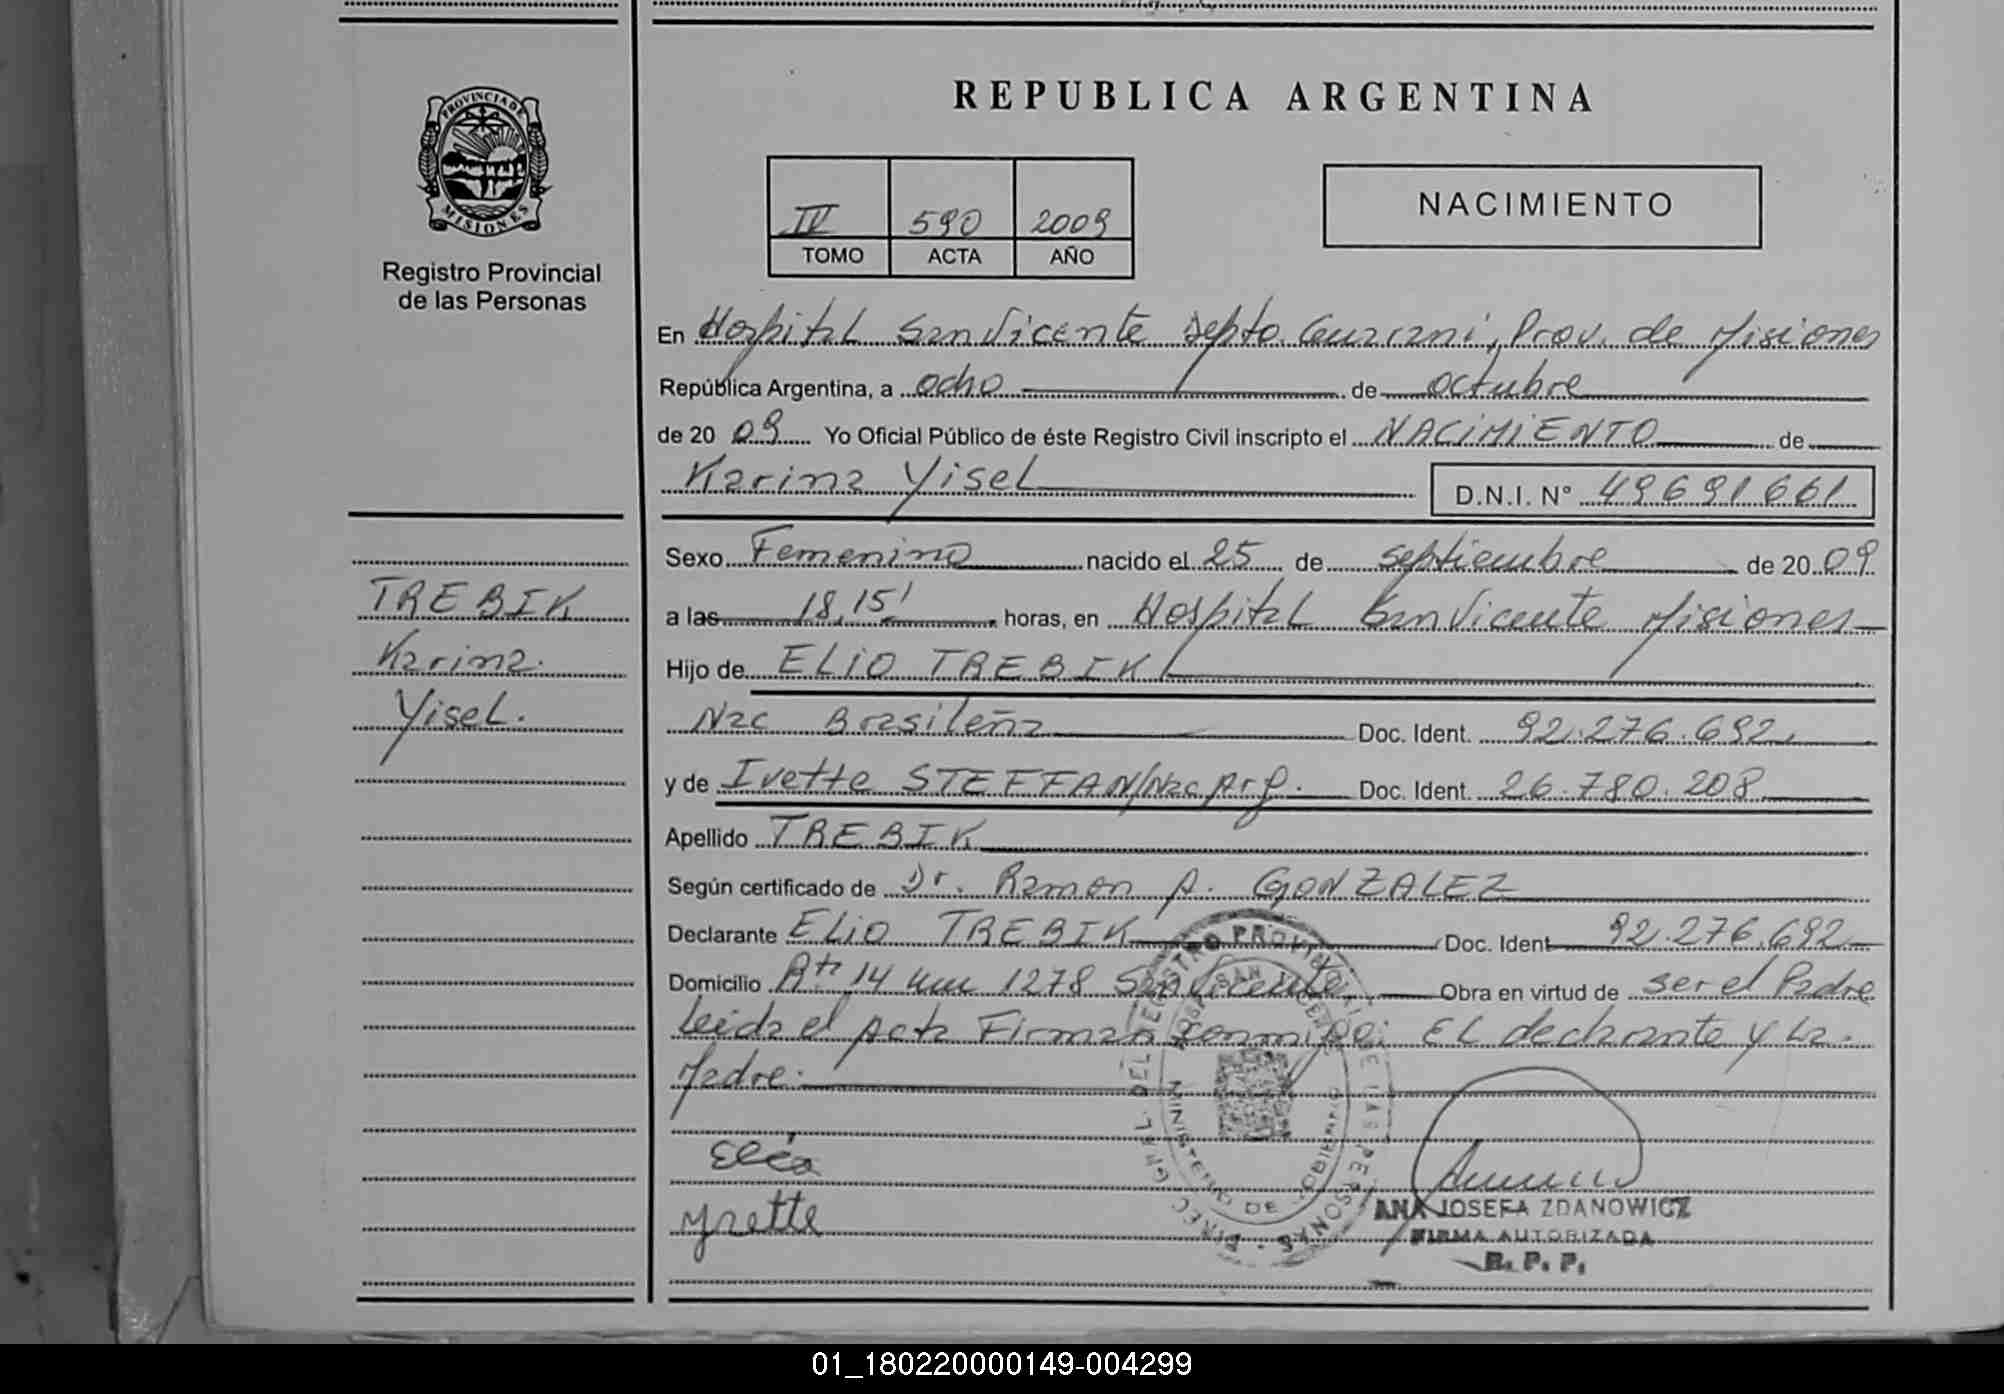 REPUBLICA ARGENTINA
PROVINCIA DE
MISIONES
Registro Provincial
de las Personas
IV 590 2009
TOMO ACTA AÑO
NACIMIENTO
En Hospital San Vicente Depto. Guarani, Prov. de Misiones
República Argentina, a ocho de octubre
de 20 09 Yo Oficial Público de éste Registro Civil inscripto el NACIMIENTO de
Karina Yisel D.N.I. N° 49691661
Sexo Femenino nacido el 25 de septiembre de 20 09
a las 18,15' horas, en Hospital San Vicente Misiones
Hijo de ELIO TREBIK
Nac Brasileña Doc. Ident. 92.276.692
y de Ivette STEFFAN/Nac Arg. Doc. Ident. 26.780.208
Apellido TREBIK
Según certificado de Dr. Ramon A. GONZALEZ
Declarante ELIO TREBIK Doc. Ident 92.276.692
Domicilio Rta 14 km 1278 San Vicente Obra en virtud de ser el Padre
Leida el Acta Firman conmigo: EL declarante y La
Madre.
TREBIK
Karina
Yisel.
Elio
Yvette
DIREC. GRAL. DEL REGISTRO PROVINCIAL DE LAS PERSONAS
MINISTERIO DE GOBIERNO
SAN VICENTE
ANA JOSEFA ZDANOWICZ
FIRMA AUTORIZADA
R. P. P.
01_180220000149-004299